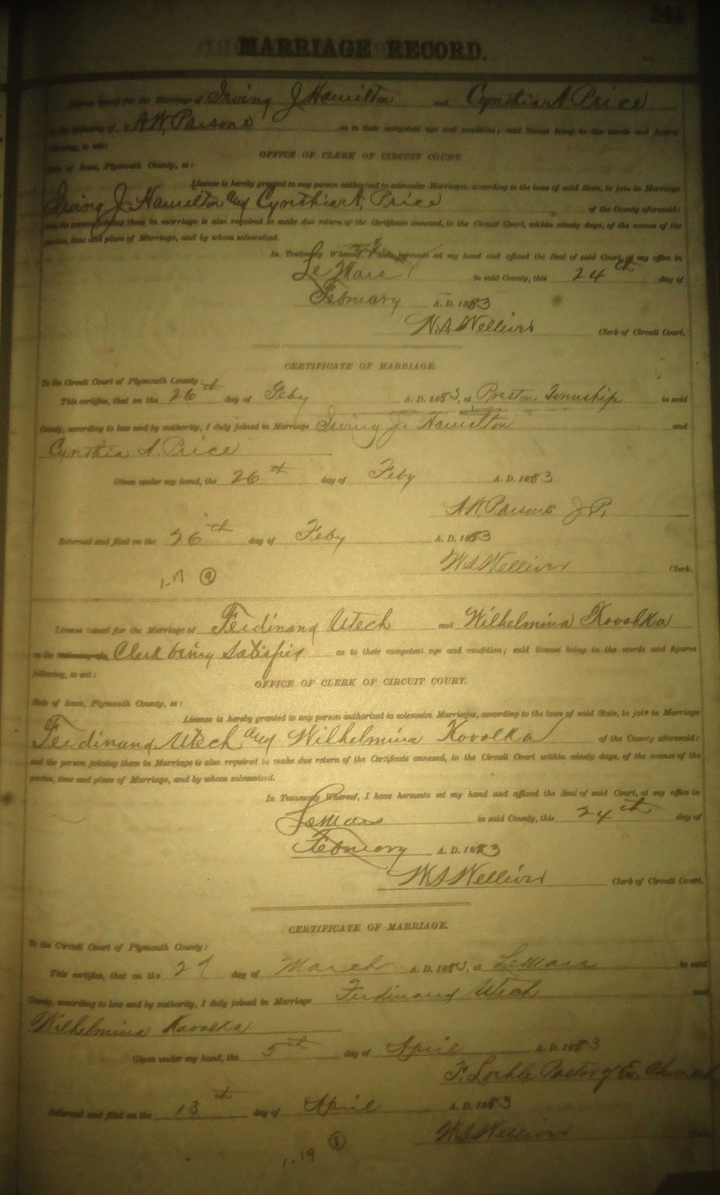 MARRIAGE RECORD.
License issued for the Marriage of Irving J Hamilton and Cynthia A Price
on the testimony of A W Parsons as to their competent age and condition; said license being in the words and figures
following, to wit:
OFFICE OF CLERK OF CIRCUIT COURT.
State of Iowa, Plymouth County, ss:
License is hereby granted to any person authorized to solemnize Marriages, according to the laws of said State, to join in Marriage
Irving J. Hamilton and Cynthia A, Price of the County aforesaid;
and the person joining them in marriage is also required to make due return of the Certificate annexed, to the Circuit Court, within ninety days, of the names of the
parties, time and place of Marriage, and by whom solemnized.
In Testimony Whereof, I have hereunto set my hand and affixed the Seal of said Court, at my office in
Le Mars in said County, this 24th day of
February A. D. 1883
W.S. Wellivir Clerk of Circuit Court.
CERTIFICATE OF MARRIAGE.
To the Circuit Court of Plymouth County:
This certifies, that on the 26th day of Feby A. D. 1883, at Preston Township in said
County, according to law and by authority, I duly joined in Marriage Irving J. Hamilton and
Cynthia A. Price
Given under my hand, the 26th day of Feby A. D. 1883
A W Parsons J P.
Returned and filed on the 26th day of Feby A. D. 1883
W.S. Wellivir Clerk.
1-17 9
License issued for the Marriage of Ferdinand Utech and Wilhelmina Kovolka
on the Clerk being Satisfied as to their competent age and condition; said license being in the words and figures
following, to wit:
OFFICE OF CLERK OF CIRCUIT COURT.
State of Iowa, Plymouth County, ss:
License is hereby granted to any person authorized to solemnize Marriages, according to the laws of said State, to join in Marriage
Ferdinand Utech and Wilhelmina Kovolka of the County aforesaid;
and the person joining them in Marriage is also required to make due return of the Certificate annexed, to the Circuit Court within ninety days, of the names of the
parties, time and place of Marriage, and by whom solemnized.
In Testimony Whereof, I have hereunto set my hand and affixed the Seal of said Court, at my office in
LeMars in said County, this 24th day of
February A. D. 1883
W.S. Wellivir Clerk of Circuit Court.
CERTIFICATE OF MARRIAGE.
To the Circuit Court of Plymouth County:
This certifies, that on the 27 day of March A. D. 1883, at LeMars in said
County, according to law and by authority, I duly joined in Marriage Ferdinand Utech and
Wilhelmina Kovolka
Given under my hand, the 5th day of April A. D. 1883
F. Pastor of Ev. Church
Returned and filed on the 13th day of April A. D. 1883
W.S. Wellivir
1-19